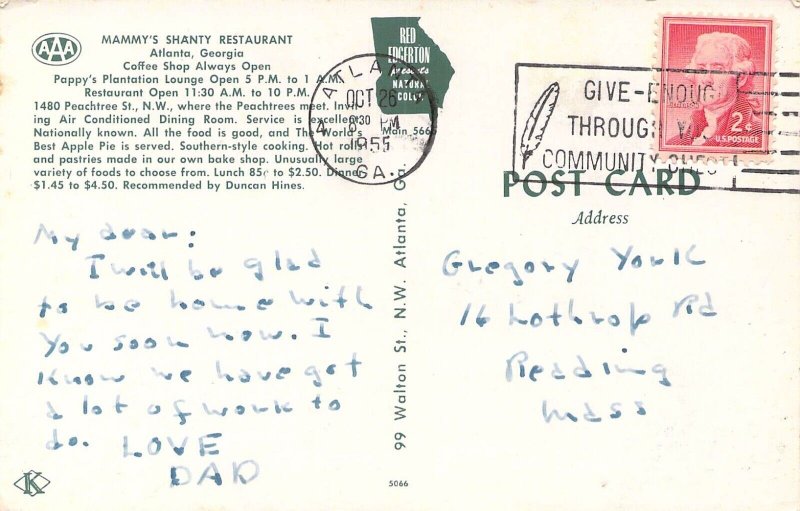 AAA
MAMMY'S SHANTY RESTAURANT
Atlanta, Georgia
Coffee Shop Always Open
Pappy's Plantation Lounge Open 5 P.M. to 1 A.M.
Restaurant Open 11:30 A.M. to 10 P.M.
1480 Peachtree St., N.W., where the Peachtrees meet. Invit-
ing Air Conditioned Dining Room. Service is excellent.
Nationally known. All the food is good, and The World's
Best Apple Pie is served. Southern-style cooking. Hot rolls
and pastries made in our own bake shop. Unusually large
variety of foods to choose from. Lunch 85¢ to $2.50. Dinner
$1.45 to $4.50. Recommended by Duncan Hines.
My dear:
I will be glad
to be home with
you soon now. I
know we have got
a lot of work to
do. LOVE
DAD
K
RED
EDGERTON
presents
NATURAL
COLOR
Main 566
ATLANTA
OCT 26
30 PM
1955
GA.
99 Walton St., N.W. Atlanta, Ga.
5066
GIVE-ENOUGH
THROUGH
COMMUNITY CHEST
2¢
U.S. POSTAGE
POST CARD
Address
Gregory York
16 Lothrop Rd
Reading
Mass